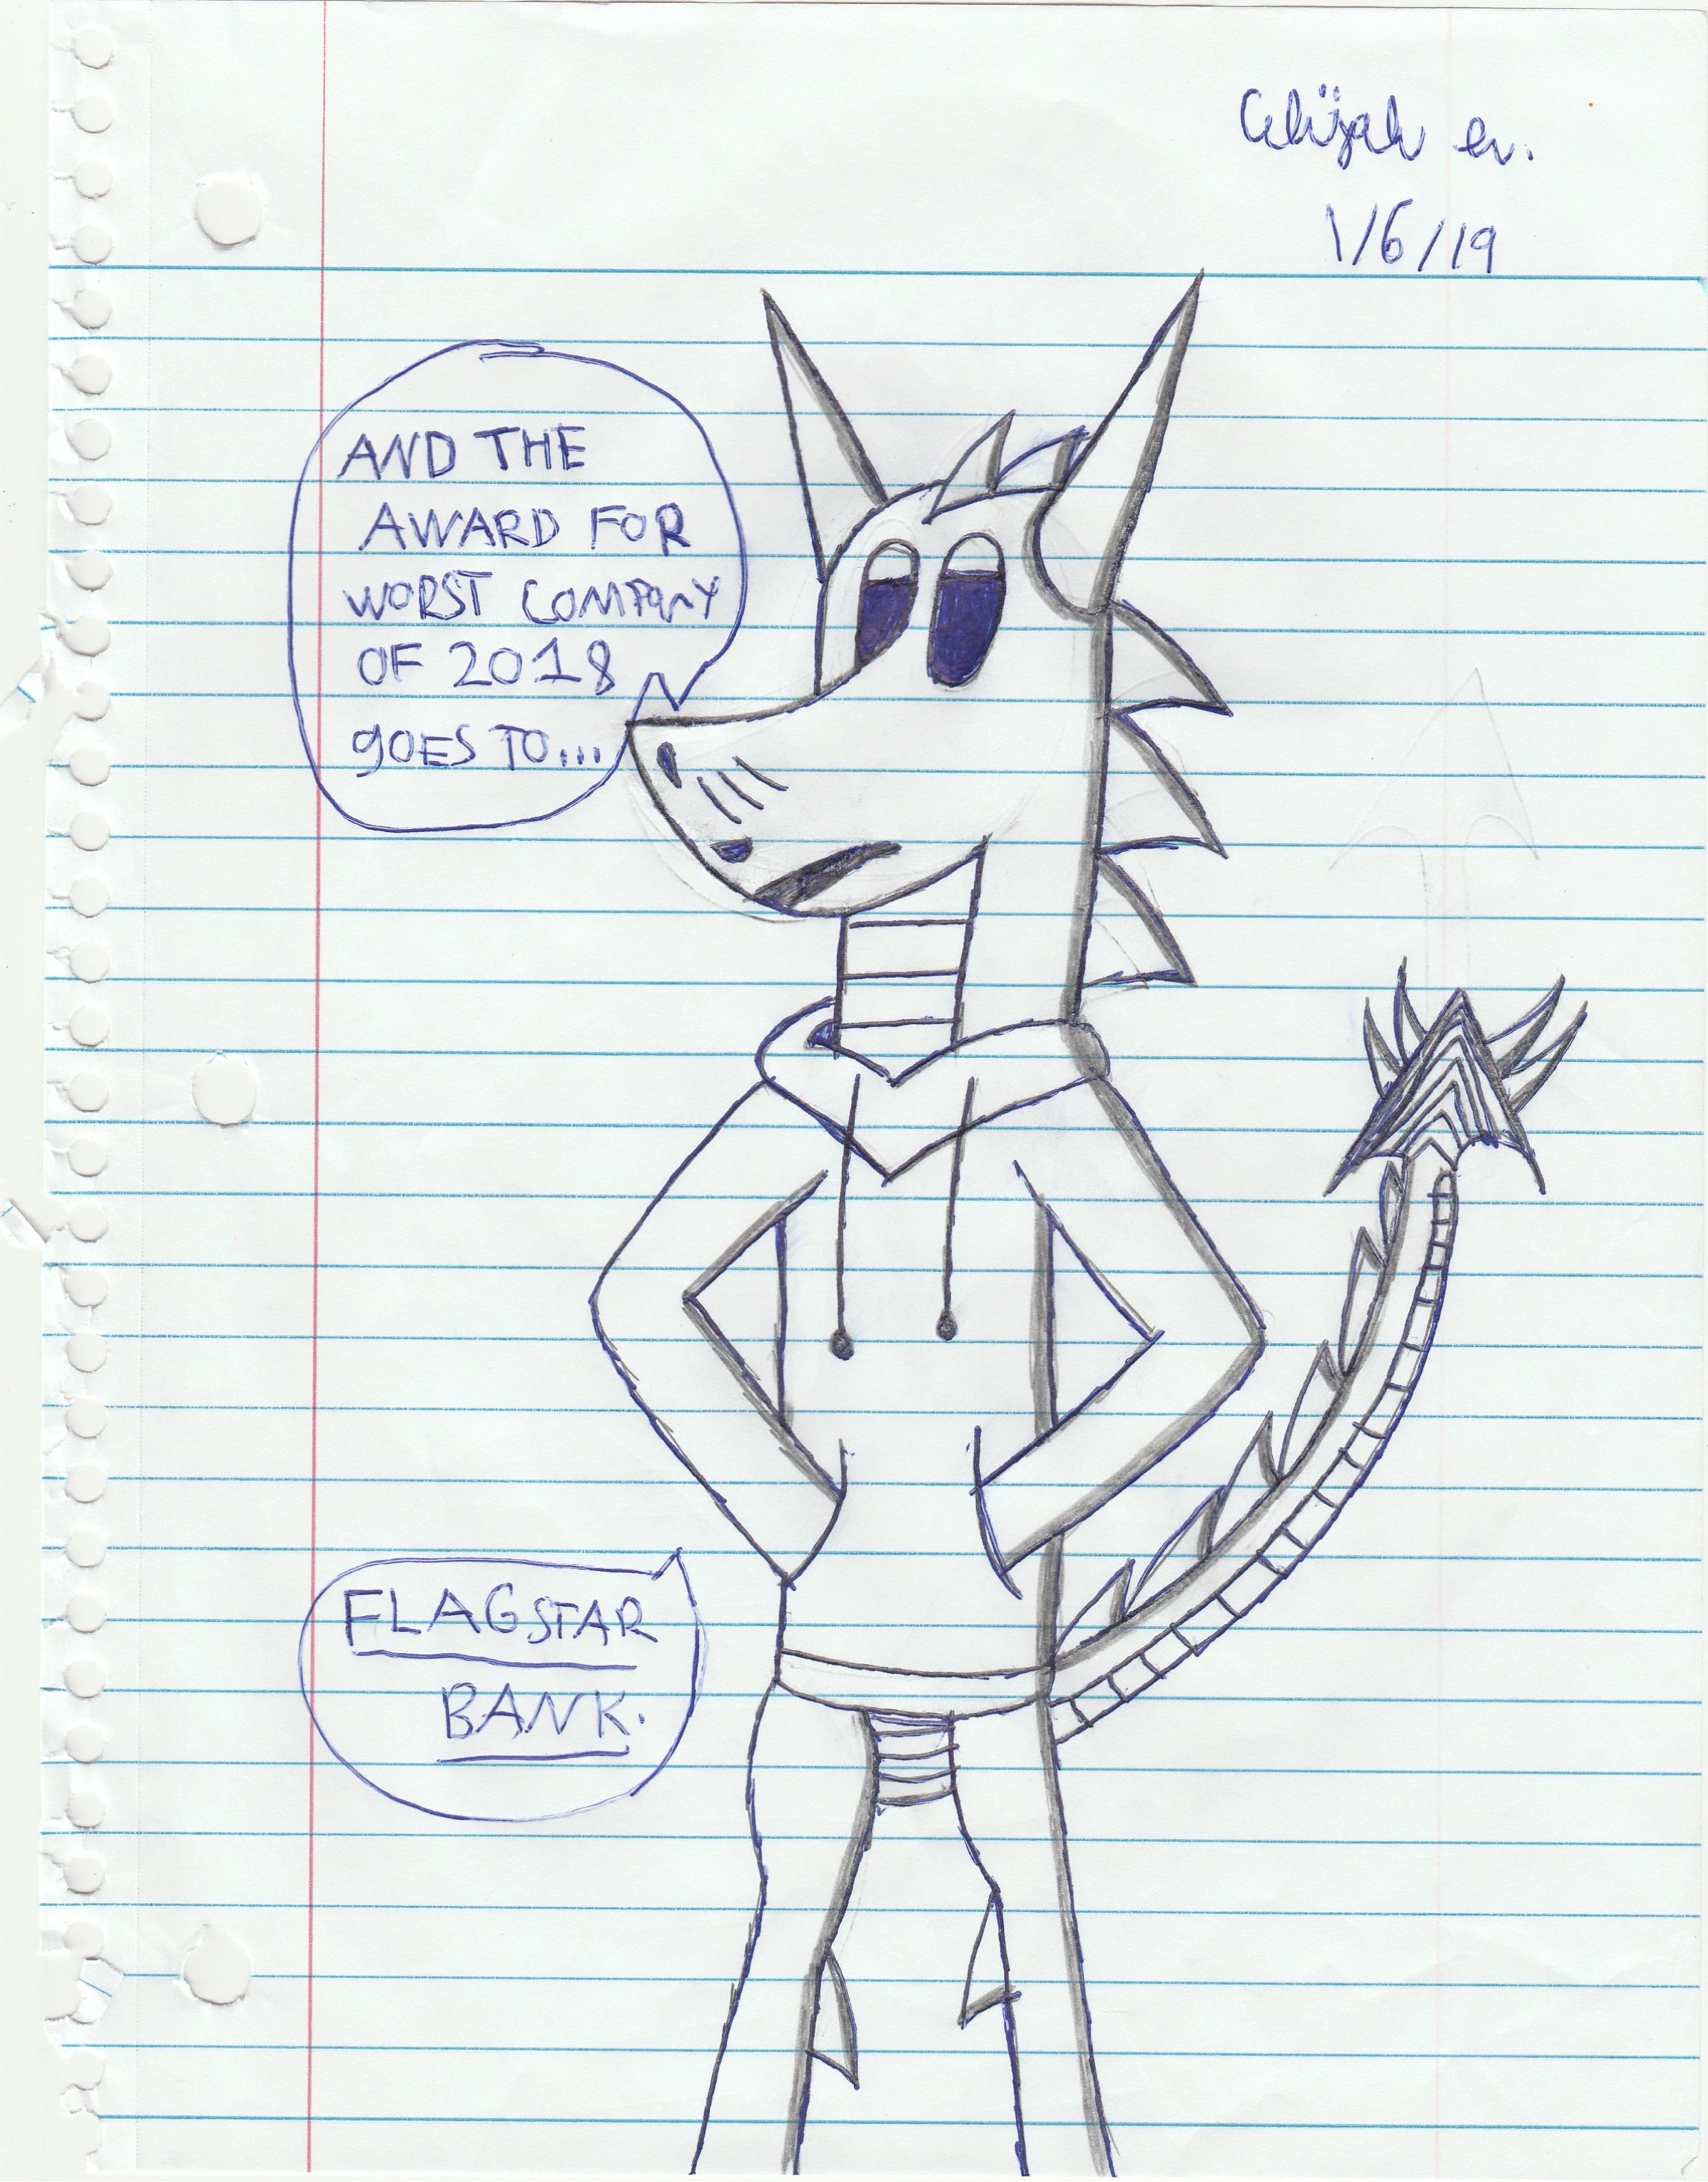 Elijah
1/6/19
AND THE
AWARD FOR
WORST COMPANY
OF 2018
GOES TO...
FLAGSTAR
BANK.